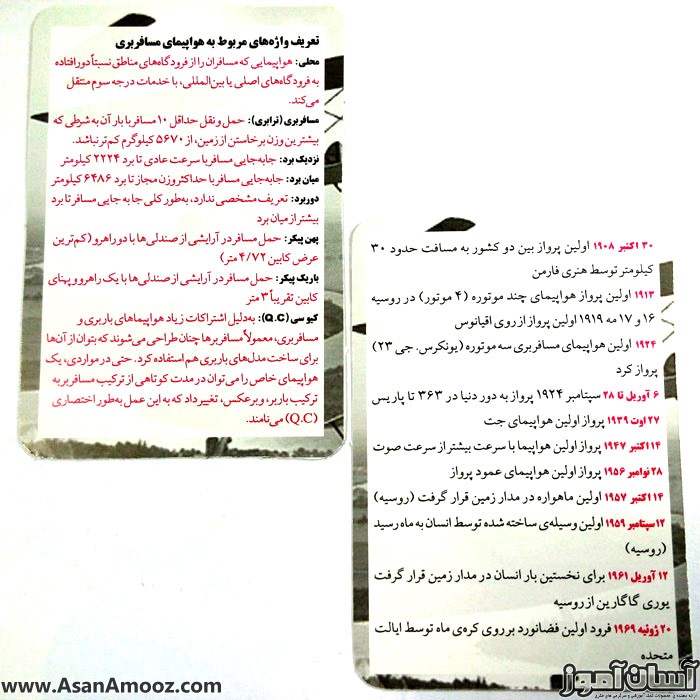 تعریف واژه‌های مربوط به هواپیمای مسافربری
محلی: هواپیمایی که مسافران را از فرودگاه‌های مناطق نسبتاً دورافتاده
به فرودگاه‌های اصلی یا بین‌المللی، با خدمات درجه سوم منتقل
می‌کند.
مسافربری (ترابری): حمل و نقل حداقل ۱۰ مسافر با بار آن به شرطی که
بیشترین وزن برخاستن از زمین، از ۵۶۷۰ کیلوگرم کم‌تر نباشد.
نزدیک برد: جابه‌جایی مسافر با سرعت عادی تا برد ۲۲۲۴ کیلومتر
میان برد: جابه‌جایی مسافر با حداکثر وزن مجاز تا برد ۶۴۸۶ کیلومتر
دوربرد: تعریف مشخصی ندارد، به‌طور کلی جا به جایی مسافر تا برد
بیشتر از میان برد
پهن پیکر: حمل مسافر در آرایشی از صندلی‌ها با دو راهرو (کم‌ترین
عرض کابین ۴/۷۲ متر)
باریک پیکر: حمل مسافر در آرایشی از صندلی‌ها با یک راهرو و پهنای
کابین تقریباً ۳ متر
کیو سی (Q.C): به‌دلیل اشتراکات زیاد هواپیماهای باربری و
مسافربری، معمولاً مسافربرها چنان طراحی می‌شوند که بتوان از آن‌ها
برای ساخت مدل‌های باربری هم استفاده کرد. حتی در مواردی، یک
هواپیمای خاص را می‌توان در مدت کوتاهی از ترکیب مسافربر به
ترکیب باربر، و برعکس، تغییر داد که به این عمل به‌طور اختصاری
(Q.C) می‌نامند.
۳۰ اکتبر ۱۹۰۸ اولین پرواز بین دو کشور به مسافت حدود ۳۰
کیلومتر توسط هنری فارمن
۱۹۱۳ اولین پرواز هواپیمای چند موتوره (۴ موتور) در روسیه
۱۶ و ۱۷ مه ۱۹۱۹ اولین پرواز از روی اقیانوس
۱۹۲۴ اولین هواپیمای مسافربری سه موتوره (یونکرس. جی ۲۳)
پرواز کرد
۶ آوریل تا ۲۸ سپتامبر ۱۹۲۴ پرواز به دور دنیا در ۳۶۳ تا پاریس
۲۷ اوت ۱۹۳۹ پرواز اولین هواپیمای جت
۱۴ اکتبر ۱۹۴۷ پرواز اولین هواپیما با سرعت بیشتر از سرعت صوت
۲۸ نوامبر ۱۹۵۶ پرواز اولین هواپیمای عمود پرواز
۱۴ اکتبر ۱۹۵۷ اولین ماهواره در مدار زمین قرار گرفت (روسیه)
۱۲ سپتامبر ۱۹۵۹ اولین وسیله‌ی ساخته شده توسط انسان به ماه رسید
(روسیه)
۱۲ آوریل ۱۹۶۱ برای نخستین بار انسان در مدار زمین قرار گرفت
یوری گاگارین از روسیه
۲۰ ژوئیه ۱۹۶۹ فرود اولین فضانورد بر روی کره‌ی ماه توسط ایالت
متحده
www.AsanAmooz.com
آسان آموز